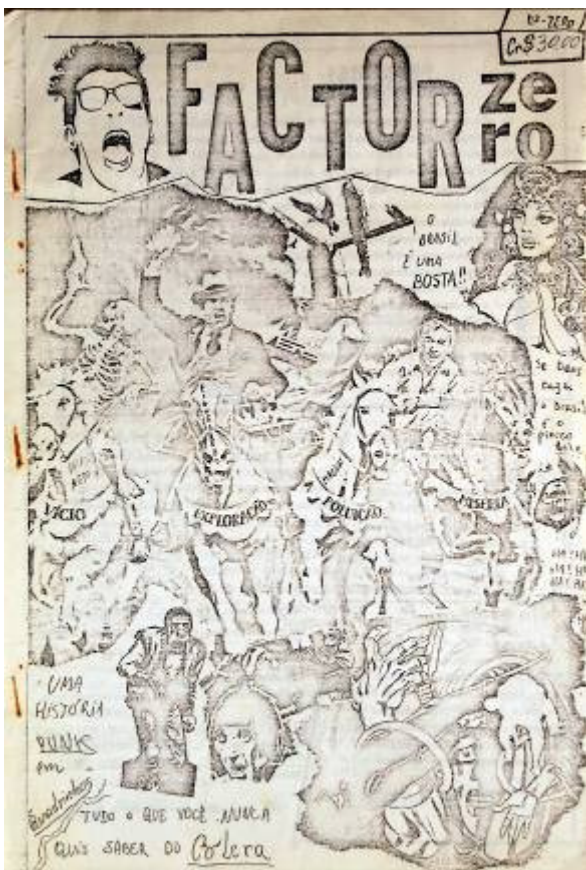 Nº-ZERO
Cr$ 30,00
FACTOR
ze
ro
O
BRASIL
É UMA
BOSTA!!
SE DEUS
CAGA
O BRASIL
É O
VÍCIO
EXPLORAÇÃO
POLUIÇÃO
MISÉRIA
HA! HA!
HA! HA!
UMA
HISTÓRIA
PUNK
em
Quadrinhos
TUDO O QUE VOCÊ NUNCA
QUIS SABER DO Cólera